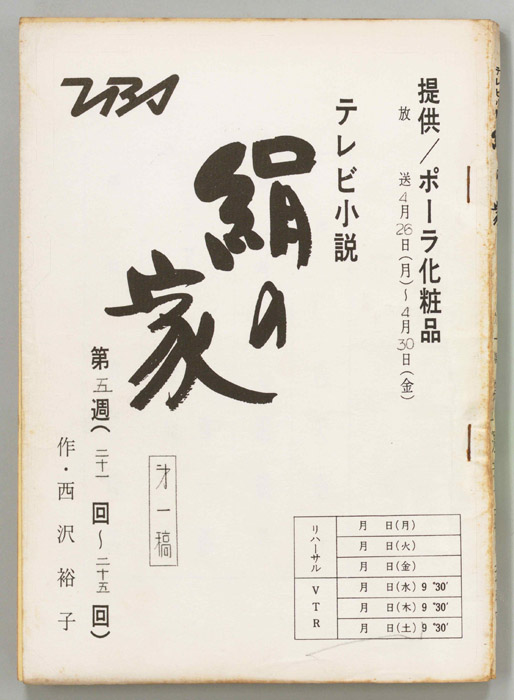 提供/ポーラ化粧品
放送4月26日(月)~4月30日(金)
テレビ小説
絹の家
第五週(二十一回~二十五回)
作・西沢裕子
TBS
才一稿
リハーサル
月 日(月)
月 日(火)
月 日(金)
VTR
月 日(水) 9゜30′
月 日(木) 9゜30′
月 日(土) 9゜30′